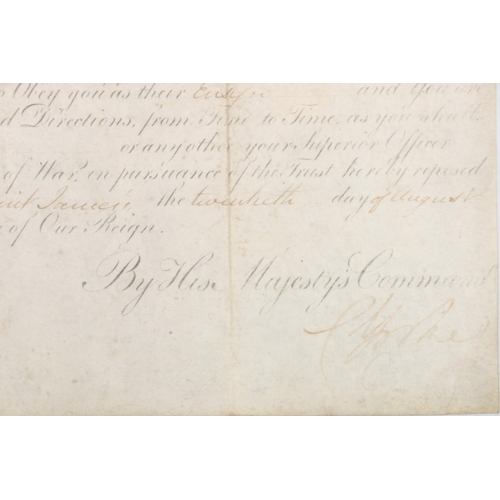 Obey you as their Ensign and you are
d Directions, from Time to Time, as you shall
or any other your Superior Officer
of War, in pursuance of the Trust hereby reposed
int James's the twentieth day of August
of Our Reign.
By His Majesty's Command